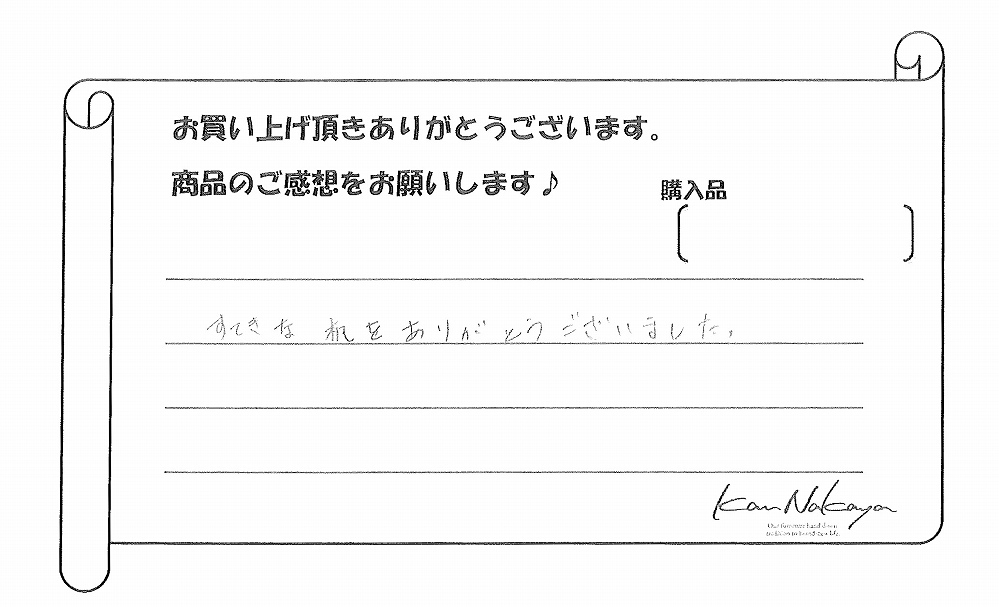 お買い上げ頂きありがとうございます。
商品のご感想をお願いします♪
購入品
すてきな 机を ありがとうございました。
Kan Nakaya